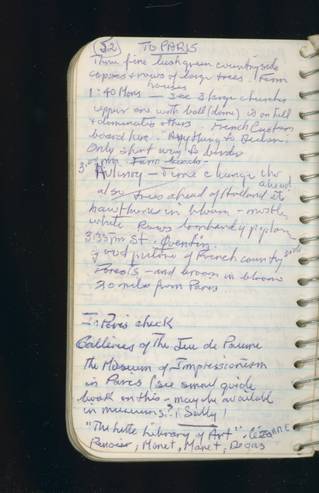 (52) TO PARIS
Thru fine lush green countryside
copses & rows of large trees. Farm
houses
1:40 Mons — see 3 large churches
upper one with ball (dome) is on hill
& dominates others French Customs
board here. Anything to declare.
Only short way to border
Aulnoy — Time change 1 hr
ahead
also trees ahead of Holland etc
hawthorne in bloom - mostly
white Rows lombardy poplar
3:35 pm St. Quentin.
good picture of French country
Forests — and broom in bloom
30 miles from Paris
In Paris check
Galleries of the Jeu de Paume
the Museum of Impressionism
in Paris (see small guide
book on this - may be available
in museums? ; Sally!
"The little Library of Art" - Cézanne
Renoir, Monet, Manet, Degas